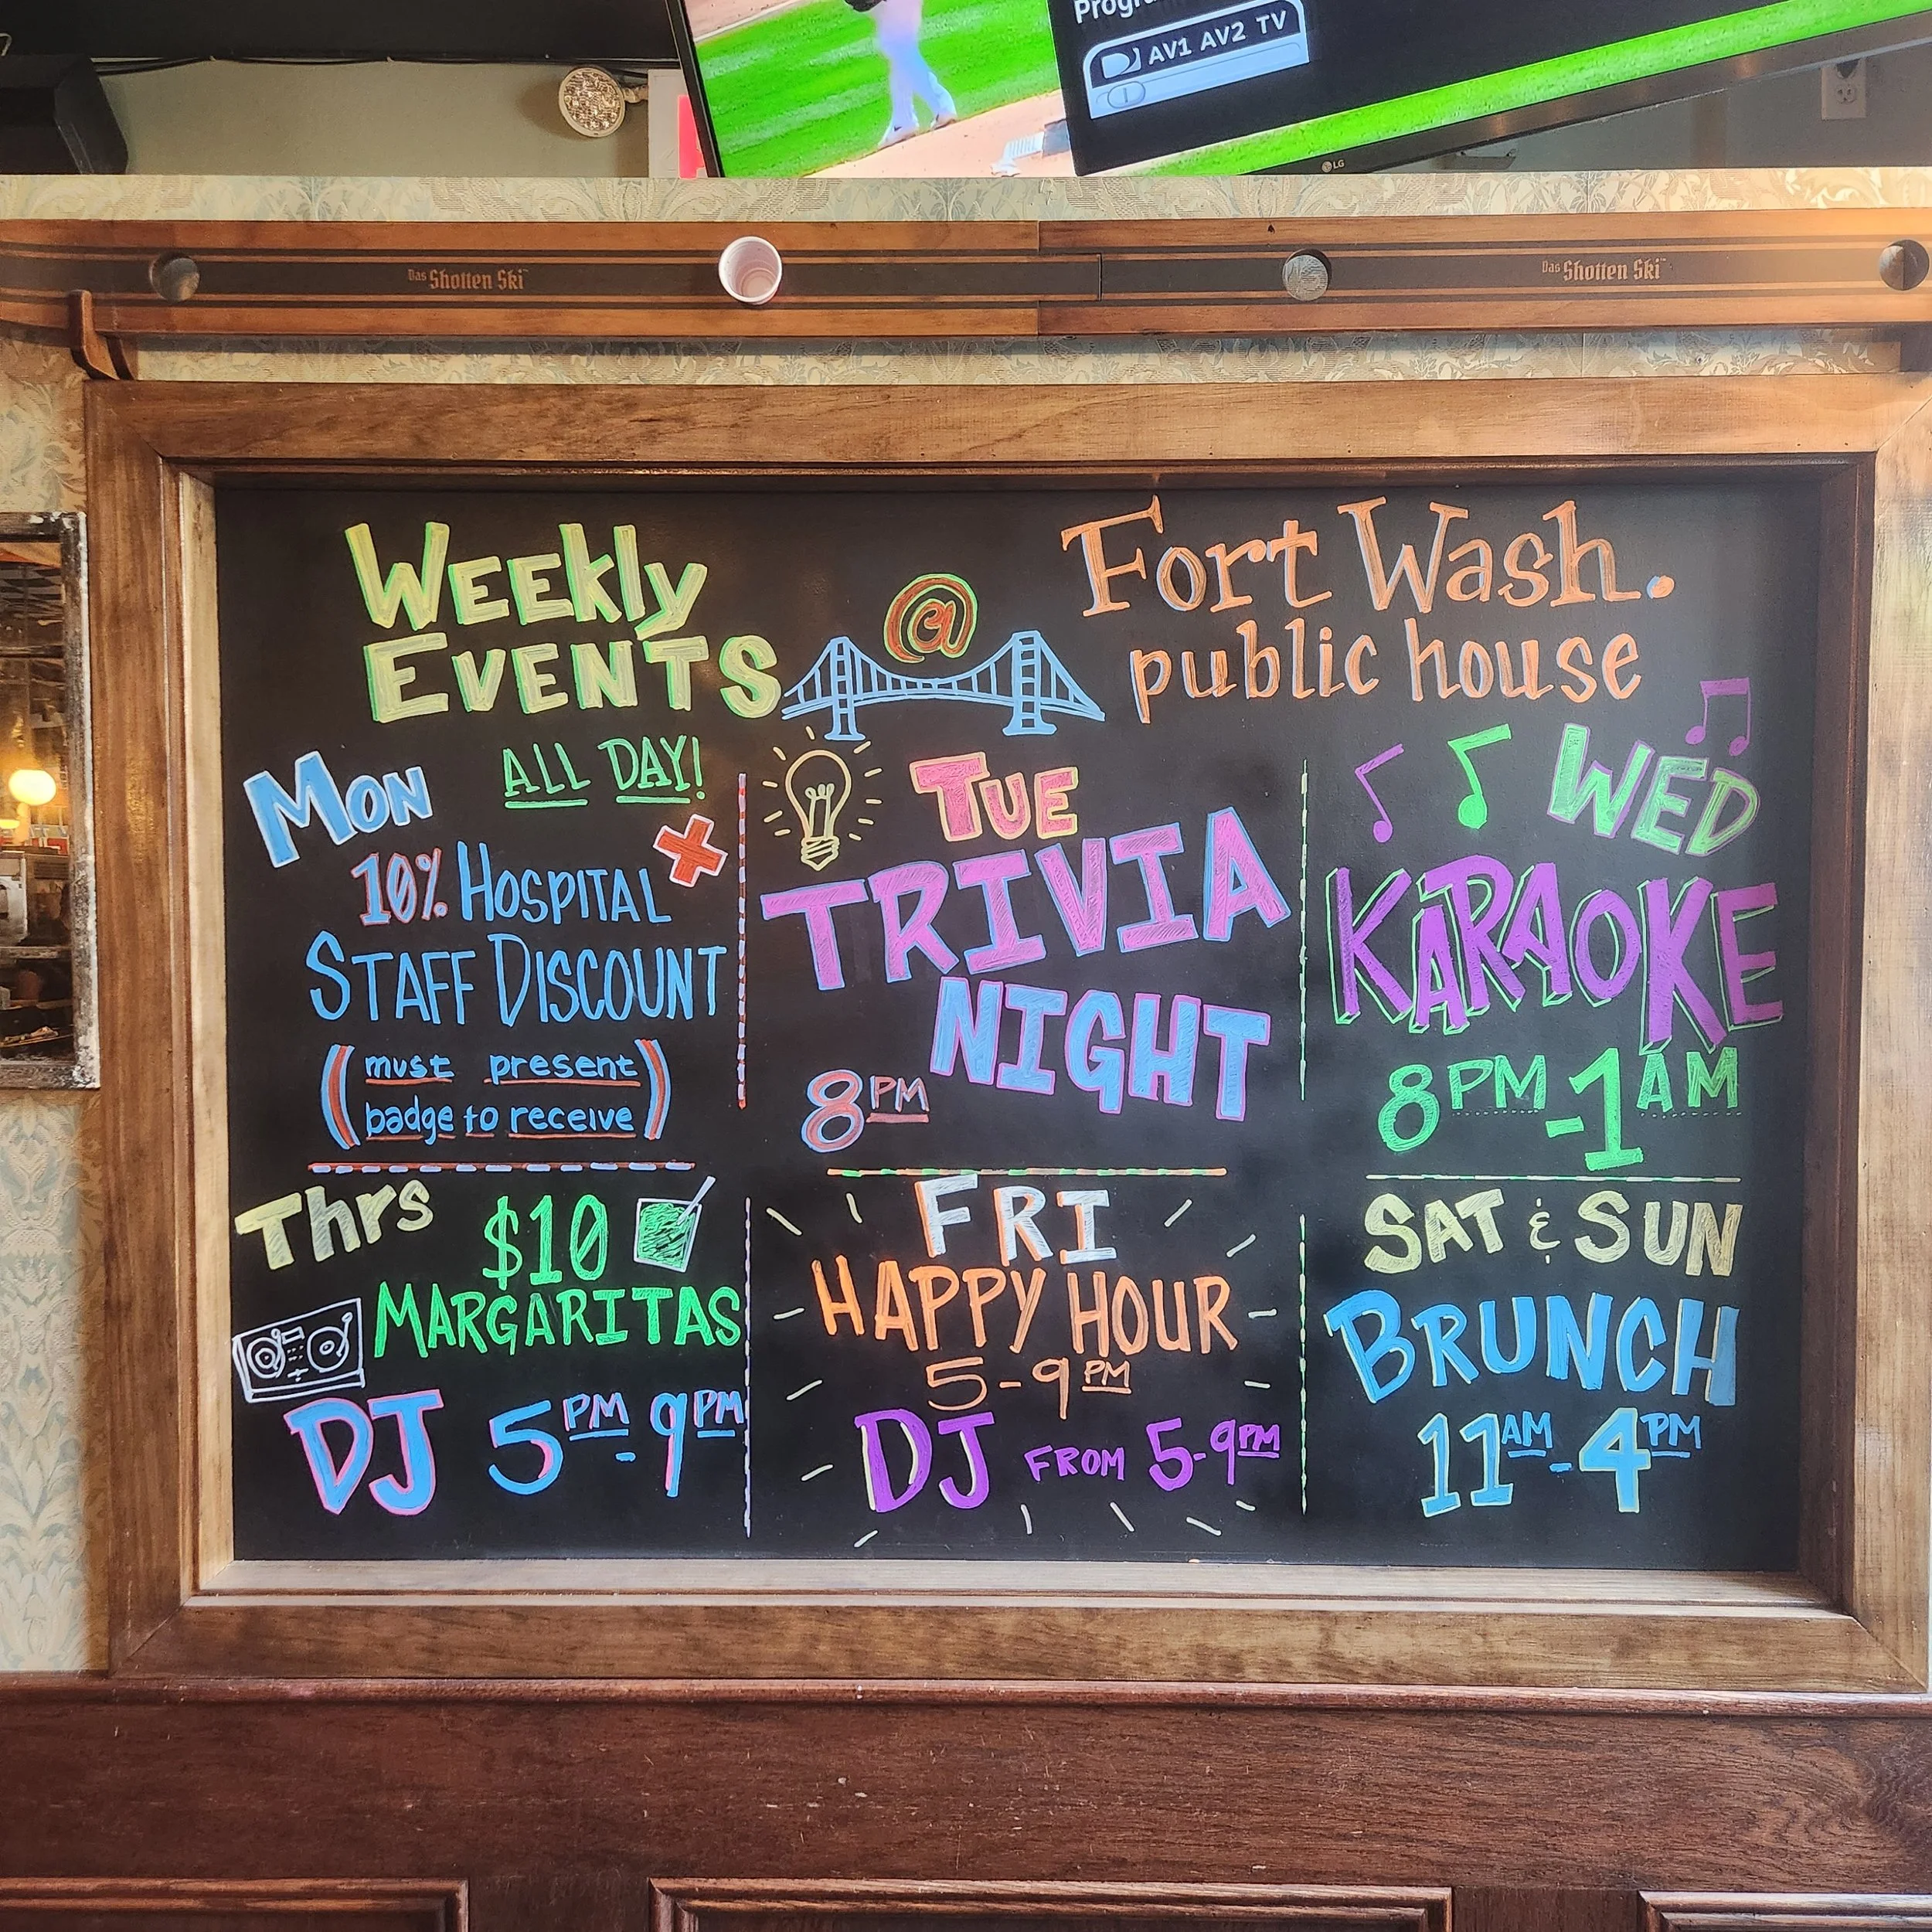 AV1 AV2 TV
LG
Das Shotten Ski™
Das Shotten Ski™
WEEKly
EVENTS
@
Fort Wash.
public house
MON
ALL DAY!
10% HOSPITAL
STAFF DISCOUNT
(must present
badge to receive)
TUE
TRIVIA
NIGHT
8PM
WED
KARAOKE
8PM-1AM
Thrs
$10
MARGARITAS
DJ 5PM-9PM
FRI
HAPPY HOUR
5-9PM
DJ FROM 5-9PM
SAT & SUN
BRUNCH
11AM-4PM